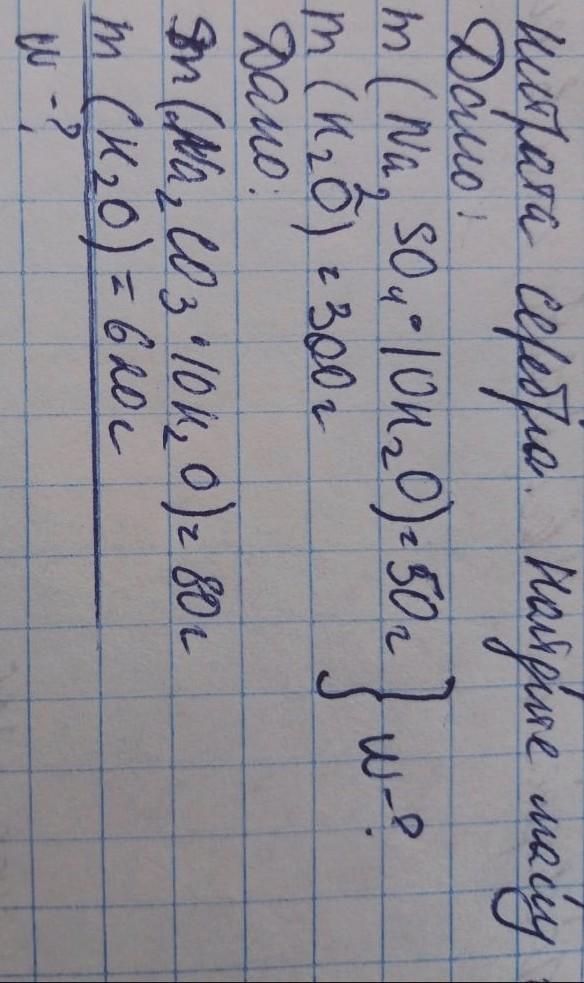 нитрата серебра. Найдите массу
Дано:
m (Na₂SO₄·10H₂O) = 50г } w-?
m (H₂O) = 300г
Дано:
m (Na₂CO₃·10H₂O) = 80г
m (H₂O) = 620г
w-?